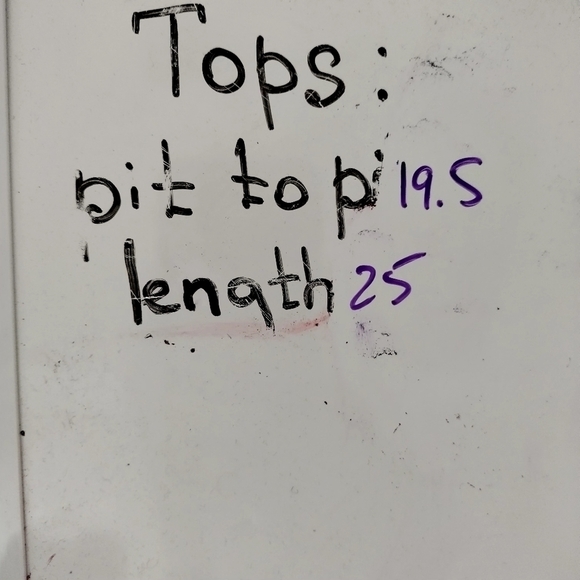 Tops:
pit to pi 19.5
length 25